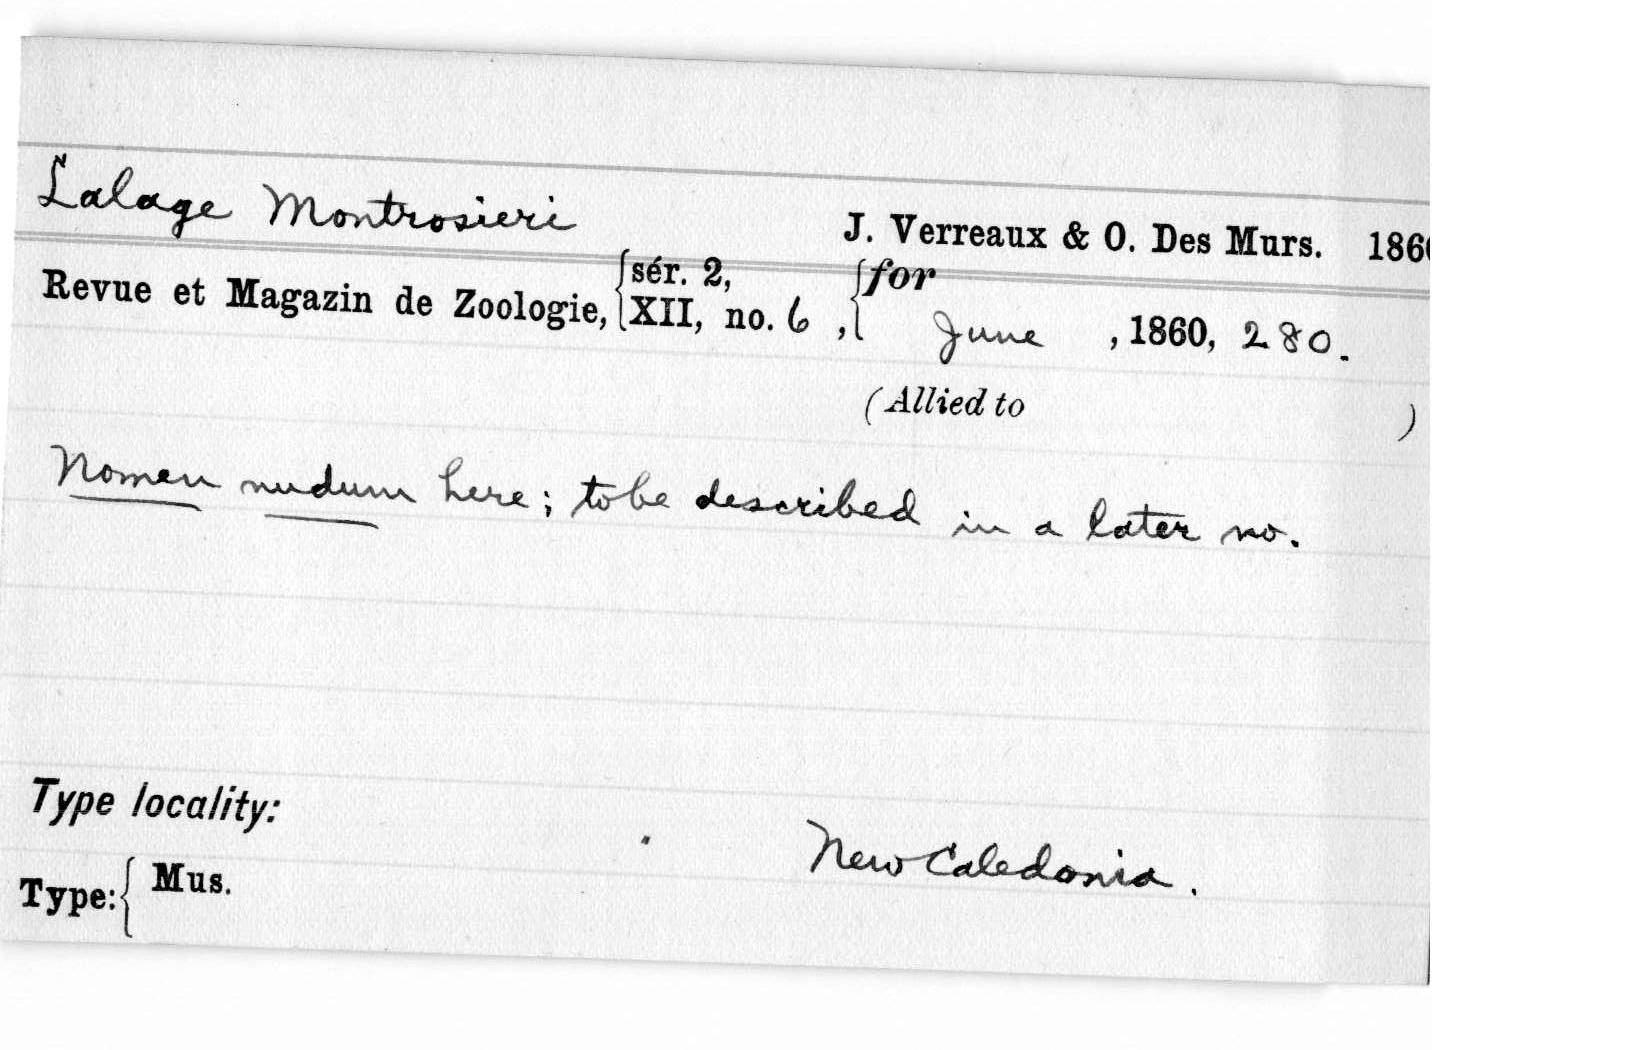 Lalage Montrosieri J. Verreaux & O. Des Murs. 1860
Revue et Magazin de Zoologie, { sér. 2, XII, no. 6 , { for June , 1860, 280.
(Allied to )
Nomen nudum here; to be described in a later no.
Type locality:
New Caledonia.
Type: { Mus.